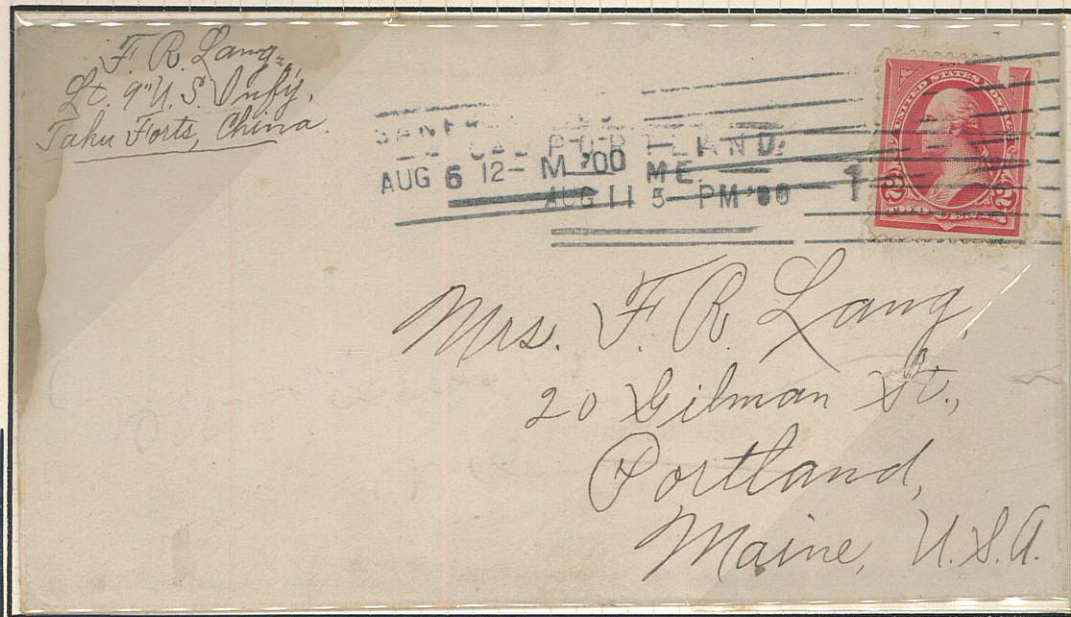 F. R. Lang,
Lt. 9" U.S. Infy,
Taku Forts, China.
AUG 6 12- M '00
PORTLAND,
ME.
AUG 11 5- PM '00
1
UNITED STATES POSTAGE
2 2
Mrs. F. R. Lang,
20 Gilman St.,
Portland,
Maine, U.S.A.